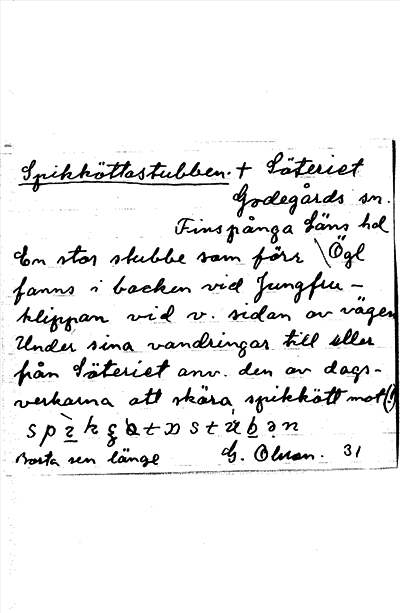 Spikköttastubben. + Säteriet
Godegårds sn.
Finspånga läns hd
En stor stubbe som förr \ Ögl
fanns i backen vid Jungfru-
klippan vid v. sidan av vägen
Under sina vandringar till eller
från Säteriet anv. den av dags-
verkarna att skära spikkött mot (!)
Borta sen länge G. Olsson. 31